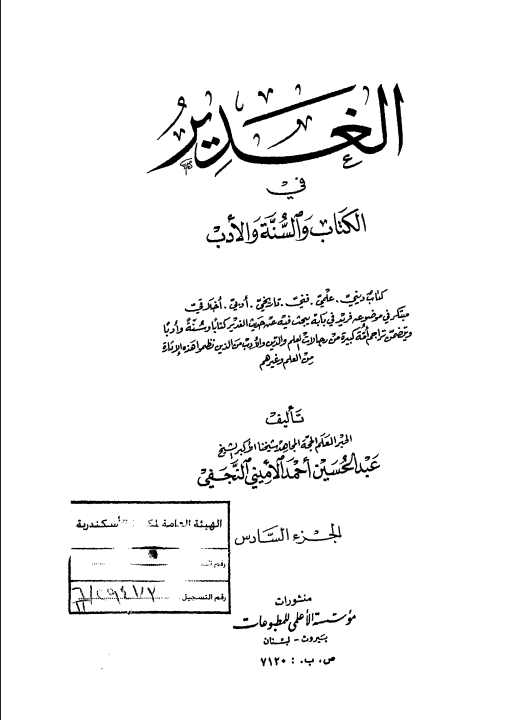 الغدير
في
الكتاب والسنة والأدب
كتاب ديني . علمي . فني . تاريخي . أدبي . أخلاقي
مبتكر في موضوعه فريد في بابه يبحث فيه عن حديث الغدير كتابا وسنة وأدبا
ويتضمن تراجم أمة كبيرة من رجالات العلم والدين والأدب من الذين نظموا هذه الإثارة
من العلم وغيرهم
تأليف
الحبر العلم الحجة المجاهد شيخنا الأكبر الشيخ
عبد الحسين أحمد الأميني النجفي
الجزء السادس
الهيئة العامة لمكتبة الأسكندرية
رقم
رقم التسجيل
منشورات
مؤسسة الأعلمي للمطبوعات
بيروت - لبنان
ص.ب. : ٧١٢٠